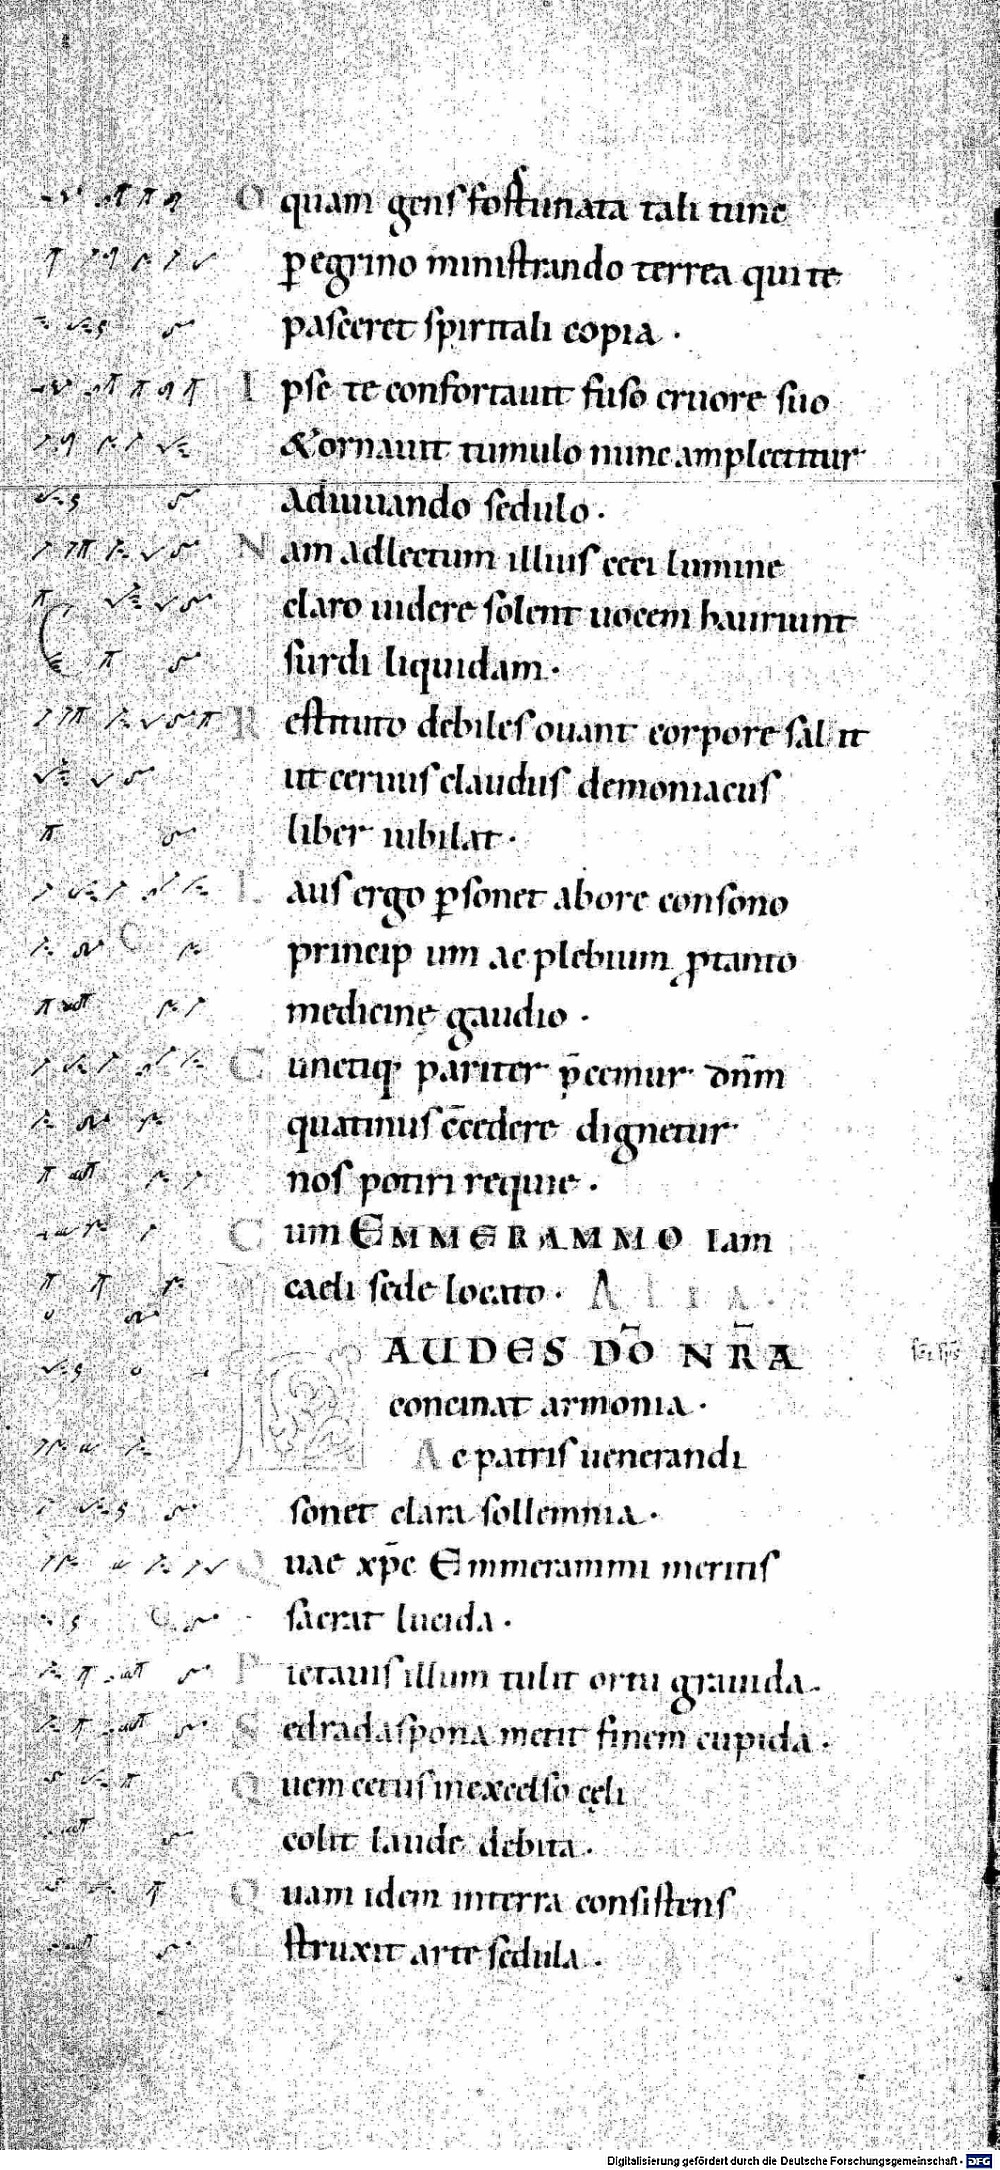 O quam gens fortunata tali tunc
p̱egrino ministrando terrea qui te
pasceret spiritali copia ·
I pse te confortauit fuso cruore suo
& ornauit tumulo nunc amplectitur
adiuuando sedulo ·
N am ad lectum illius ceci lumine
claro uidere solent uocem hauriunt
surdi liquidam ·
R estituto debiles ouant corpore salit
ut ceruus claudus demoniacus
liber iubilat ·
L aus ergo p̱sonet ab ore consono
principum ac plebium ꝓ tanto
medicinę gaudio ·
C unctiq· pariter p̄cemur dn̄m
quatinus c̄cedere dignetur
nos potiri requie ·
C um EMMERAMMO iam
caeli sede locato · A L I A ·
LAUDES DŌ NR̄A
concinat armonia ·
A c patris uenerandi
sonet clara sollemnia ·
Q uae xp̄c Emmerammi meritis
sacrat lucida ·
P ictauis illum tulit ortu grauida ·
S ed radaspona metit finem cupida ·
Q uem cetus in excelso cęli
colit laude debita ·
Q uam idem in terra consistens
struxit arte sedula ·
Digitalisierung gefördert durch die Deutsche Forschungsgemeinschaft · DFG